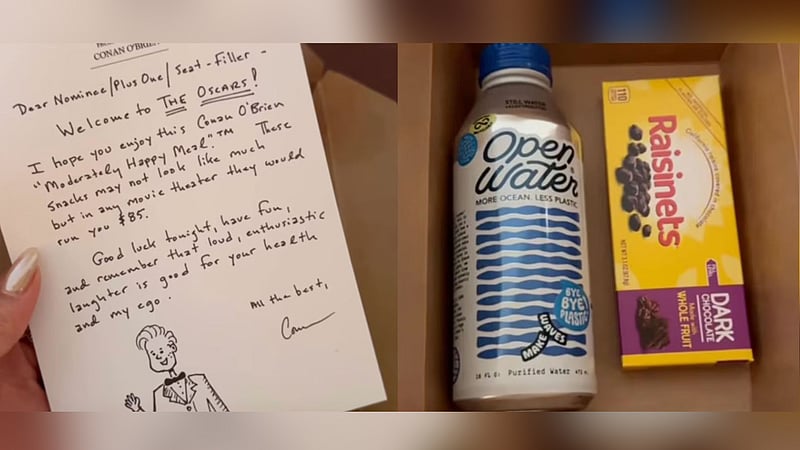 CONAN O'BRIEN
Dear Nominee/Plus One/Seat-Filler -
Welcome to THE OSCARS!
I hope you enjoy this Conan O'Brien
"Moderately Happy Meal."™ These
snacks may not look like much
but in any movie theater they would
run you $85.
Good luck tonight, have fun,
and remember that loud, enthusiastic
laughter is good for your health
and my ego.
All the best,
Conan
STILL WATER
Open
Water
MORE OCEAN. LESS PLASTIC.
BYE
BYE
PLASTIC
MAKE
WAVES
16 FL OZ Purified Water
110
Raisinets
California raisins covered in chocolate
NET WT 3.1 OZ
DARK
CHOCOLATE
Made with
WHOLE FRUIT